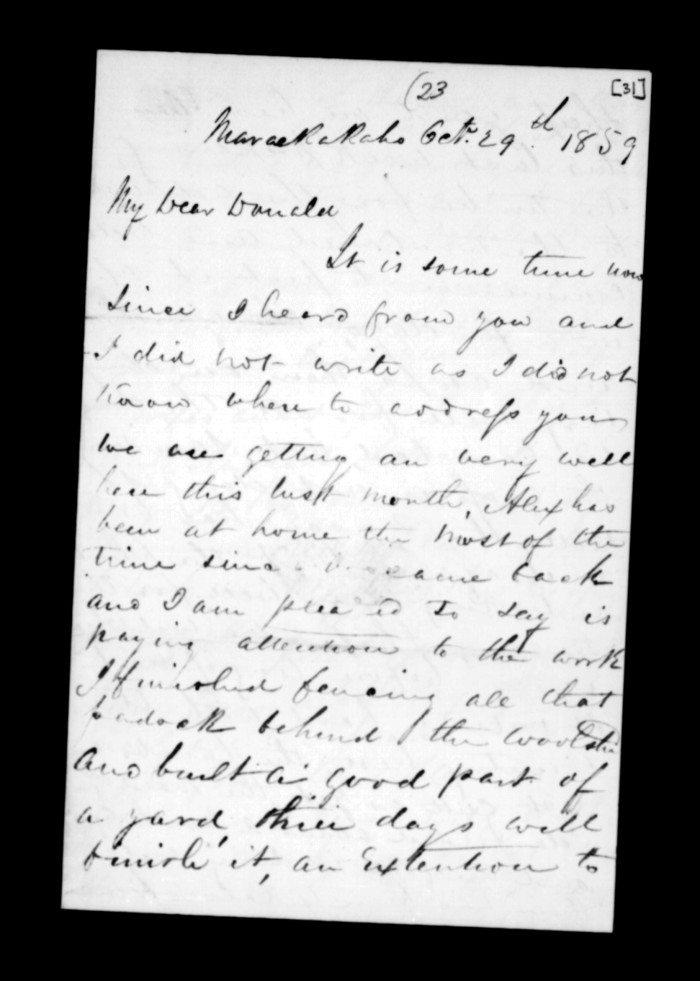 (23
[31]
Maraekakaho Octr. 29th 1859
My Dear Donald
It is some time now
since I heard from you and
I did not write as I did not
know where to address you
we are getting an very well
here this last month, Alex has
been at home the most of the
time since came back
and I am pleased to say is
paying attention to the work
I finished fencing all that
padock behind the woolshed
and built a good part of
a yard, three days will
finish it, an extention to